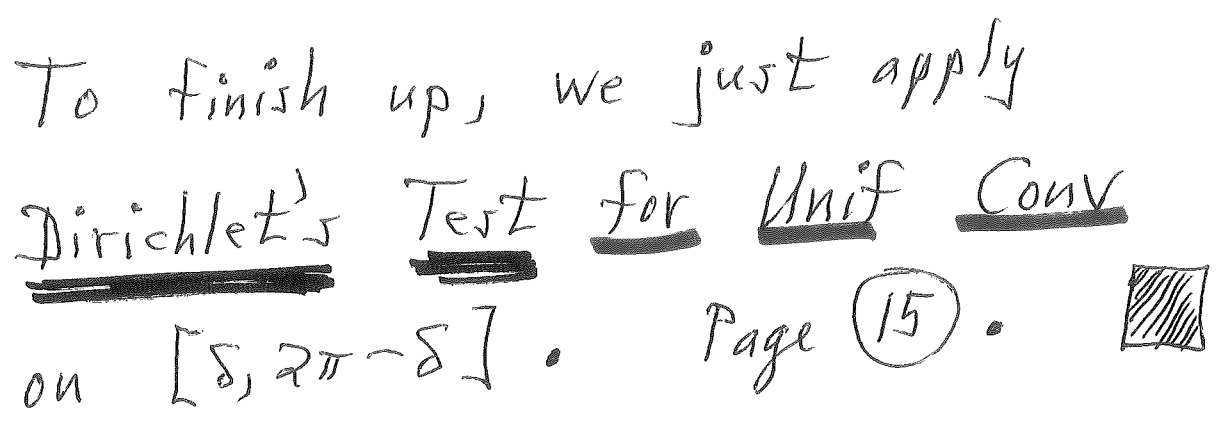 To finish up, we just apply
Dirichlet's Test for Unif Conv
on [δ, 2π-δ]. Page 15.